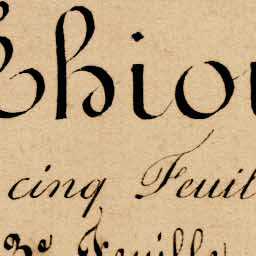 Thiou
cinq Feuil
3e Feuille